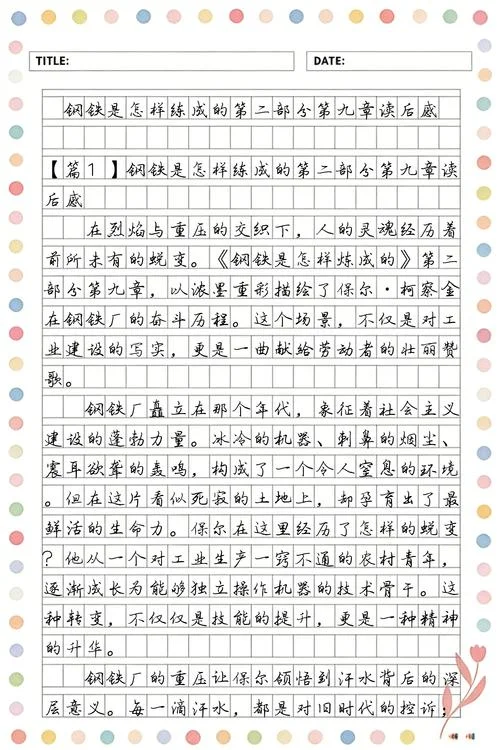 TITLE:
DATE:
钢铁是怎样练成的第二部分第九章读后感
【篇1】钢铁是怎样练成的第二部分第九章读
后感
在烈焰与重压的交织下，人的灵魂经历着
前所未有的蜕变。《钢铁是怎样炼成的》第二
部分第九章，以浓墨重彩描绘了保尔·柯察金
在钢铁厂的奋斗历程。这个场景，不仅是对工
业建设的写实，更是一曲献给劳动者的壮丽赞
歌。
钢铁厂矗立在那个年代，象征着社会主义
建设的蓬勃力量。冰冷的机器、刺鼻的烟尘、
震耳欲聋的轰鸣，构成了一个令人窒息的环境
。但在这片看似死寂的土地上，却孕育出了最
鲜活的生命力。保尔在这里经历了怎样的蜕变
？他从一个对工业生产一窍不通的农村青年，
逐渐成长为能够独立操作机器的技术骨干。这
种转变，不仅仅是技能的提升，更是一种精神
的升华。
钢铁厂的重压让保尔领悟到汗水背后的深
层意义。每一滴汗水，都是对旧时代的控诉；